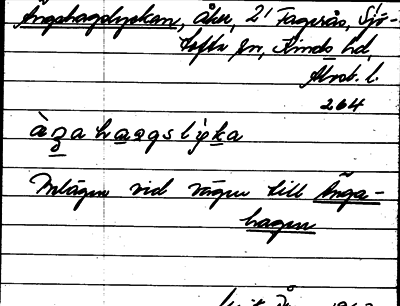 Ängshagslyckan, Åker, 2' Fagerås, Sjö-
tofta sn, Kinds hd,
Älvsb. l.
264
àʒa haagslỳka
Inlägan vid vägen till Änga-
hagen